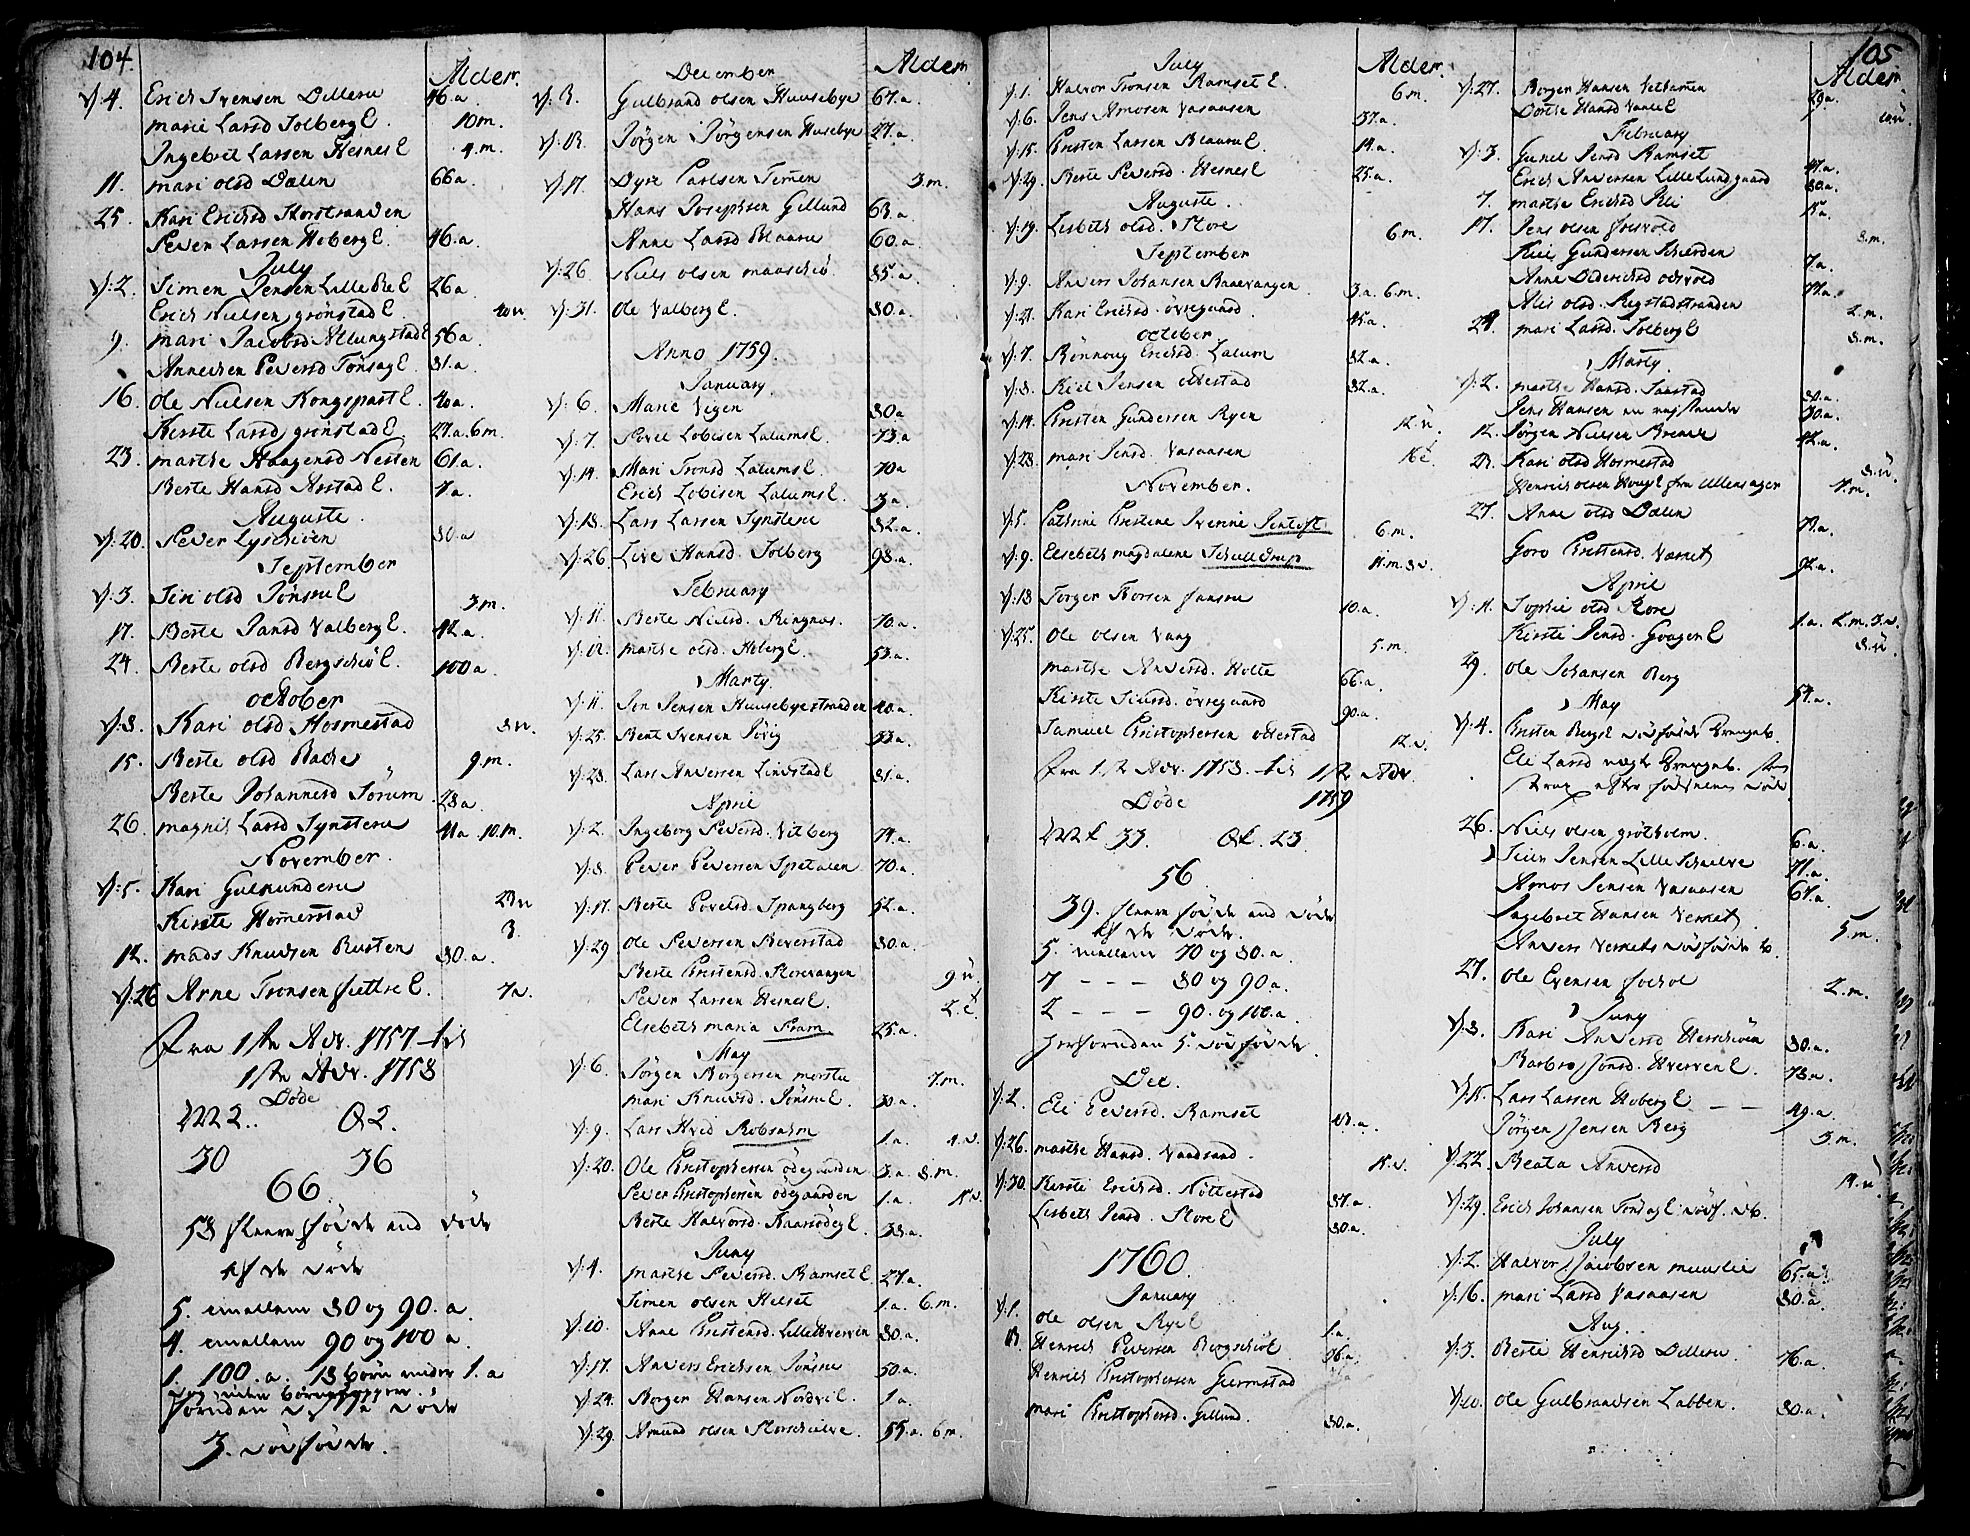 104.
Alder.
V: 4. Erich Svensen Dilleru 46.a.
Marie Larsd Solberg E. 10 m.
Ingebret Larsen Hesnes E 4.m.
11. Mari olsd Dælin 66 a.
25. Kari Erichsd Horstranden
Peder Larsen Hoberg E. 46.a.
July
V: 2. Simen Jensen Lille Ree E 26 a
Erich Nielsen Grønstad E.
9. Mari Jacobsd Allungstad E 56 a.
Annichen Pedersd Tønsag E. 31.a
16. Ole Nielsen Kongspart E. 40a.
Kirste Larsd Grønstad E. 27.a. 6 m.
23. Marthe Haagensd Nesten 61 a.
Berte Hansd Arstad E. 7 a.
Auguste.
V: 20. Peder Lyscheien 30.a
September
V: 3. Siri olsd Jønsru E 3 m.
17. Berte Jansd Valberg E. 42.a.
24. Berte olsd Bergschiø E. 100 a.
October
V: 8. Kari olsd Hosmestad
15. Berte olsd Backe 9. m.
Berte Johannesd Sørum 28 a.
26. Magnil Larsd Synsteru 41 a 10. m.
November.
V: 5. Kari Gulmunderu
Kirste Homerstad 3.
12. Mads Knudsen Rusten 80. a.
V: 26 Arne Tronsen Sættre E. 7 a.
Fra 1ste Adv. 1757 til
1ste Adv. 1758
Døde
M 2.. Q 2.
30 36
66.
53 fleere fødde end døde
af de døde
5. imellem 80 og 90. a.
4. imellem 90 og 100 a
1. 100. a. 18 børn under 1. a
foruden disse døde
3. dødfødde.

December Alder.
V: 3. Gulbrand olsen Huusebye 67.a.
V: 13. Jørgen Jørgensen Husebye 27.a.
V: 17. Dyre Carlsen Temen 3.m.
Hans Josephsen Gillund 63.a
Anne Larsd Blaaru 60.a.
V: 26. Niels olsen Maaschiø. 85.a
V: 31. Ole Valberg E. 80.a.
Anno 1759.
January.
V: 6. Marie Vigen 80a
V: 7. Povel Lobisen Lalums E. 73.a
V: 14. Mari Tronsd Lalums E. 70 a
Erich Lobisen Lalums E. 3 a.
V: 18. Lars Larsen Synsteru 82.a.
V: 26. Live Hansd. Solberg 98.a.
February
V: 11. Berte Nielsd. Ringnæs. 70.a.
V: 12. Marthe olsd. Hoberg E. 53.a.
Marty.
V: 11. Jon Jensen Huusebyestranden 40.a.
V: 25. Bent Svensen Jørig 33.a.
V: 28. Lars Andersen Lindstad E 31.a.
April
V: 2. Ingeborg Pedersd. Vitberg 74.a.
V: 8. Peder Pedersen Spetalen 70.a.
V: 17. Berte Povelsd. Spangberg 52.a.
V: 29 Ole Pedersen Beverstad 80.a.
Berte Christensd. Storevangen 9 u.
Peder Larsen Hesnes E. 2. t.
Elsebeth Maria Fram 25.a.
May
V: 6. Jørgen Borgersen Morstu 7. m.
Mari Knudsd. Jønsru E. 30.a.
V: 9. Lars Hvid Robsahm 1.a. 4.d.
V: 20. Ole Christophersen Ødegaarden 3.a. 8.m.
Peder Christophersen Ødegaarden 1.a.
Berte Halvorsd. Kaarsødeg E. 38.a.
Juny
V: 4. Marthe Pedersd. Ramset E. 27.a.
Simen olsen Helset 1.a. 6.m.
V: 10. Anne Christensd. Lille Hverven 80.a.
V: 17. Anders Erichsen Jønsru 50.a.
V: 24. Borger Hansen Nordvi E. 1.a
V: 29. Amund olsen Storschielve. 55.a. 6 m.

July Alder.
V: 1. Halvor Tronsen Ramset E. 6. m.
V: 6. Jens Amosen Vasaasen 37.a.
V: 15. Christen Larsen Blaaru E. 14.a.
V: 29. Berte Pedersd. Hesnes E 25.a.
Auguste.
V: 19. Lisbeth olsd. Store 6 m.
September
V: 9. Anders Johansen Raaevangen 3.a. 6.m.
V: 21. Kari Erichsd. Øvregaard. 45.a.
October
V: 7. Rønnoug Erichsd. Lalum 82.a.
V: 8. Kiel Jensen Ottestad 82.a.
V: 14. Christen Gundersen Ryen 12. u.
V: 28. Mari Jensd. Vasaasen 16 t.
November.
V: 5. Cathrine Christene Iverine Jentoft 6. m.
V: 9. Elsebeth Magdalene Schielderup 11. m. 8 d.
V: 18 Torger Torsen Jønsru 10.a.
V: 25. Ole olsen Vang 5. m.
Marthe Andersd. Holte 66.a.
Kirste Siursd. Øvregaard 90.a.
Samuel Christophersen Ottestad 12. d.
Fra 1ste Adv. 1758. til 1ste Adv.
Døde 1759
M 33 Q 23
56
39. fleere fødde end døde
af de døde.
5. imellem 70 og 80. a.
7 - - - 80 og 90 a.
2 - - - 90. og 100. a.
herforuden 5. dødfødde.
Dec.
V: 2. Eli Pedersd. Ramset
V: 26. Marthe Hansd. Vaadsand.
V: 30. Kirsti Erichsd. Nøttestad 37.a.
Lisbeth Jensd. Store E 80.a.
1760.
January
V: 1. Ole olsen Rye E 1.a.
13. Henrich Pedersen Bergschiøl 76.a.
Henrich Christophersen Giermstad
Mari Christophersd. Gillund. 80.a.

105
Alder.
V: 27. Borger Hansen Veltumen 29.a.
Dorthe Hansd Vaale E
February
V: 3. Gunil Jensd Ramset 47.a.
Erich Andersen Lille Lundgaard 80.a.
7. Marthe Erichsd Bli 15.a.
17. Jens olsen Grisvold 3. m.
Kiil Gundersen Schierden 7.a.
Anne Diderichsd Odsvold 77.a.
Alis olsd. Rigstadstranden 2. m.
24. Mari Larsd. Solberg E 8. m.
Marty.
V: 2. Marthe Hansd. Jaastad 80.a.
Jens Hansen 30.a.
12. Jørgen Nielsen Brenne 42.a.
23. Kari olsd Hosmestad 8. u.
Henrich olsen Houg E fra Ullensager
27. Anne olsd Dælin 77.a.
Goro Christensd. Værket 92.a.
April
V: 11. Sophie olsd Store 1.a. 2. m. 3. d.
Kirsti Jensd. Gaagen E 8. u.
29. Ole Johansen Berg 54.a.
May
V: 4. Christen Bergs E dødfødde Drengeb.
Eli Larsd
26. Niels olsen Grøtholm. 6. a.
Siur Jensen Lille Schielve 71.a.
Amos Jensen Vasaasen 67.a.
Ingebret Hansen Verket 5. m.
Anders Verkets dødfødde b.
27. Ole Evensen Sochol 2. m.
Juny
V: 8. Kari Andersd Hernschøien 80.a.
Barbro Jonsd. Hverven E. 73.a.
V: 15. Lars Larsen Hoberg E - - 49.a.
Jørgen Jensen Berg 3. m.
V: 22. Beata Andersd 14. u.
V: 29. Erich Johansen Tønsag E dødf. db.
July
V: 2. Halvor Jacobsen Muuslie 65.a.
V: 16. Mari Larsd Vasaasen 80.a.
Aug.
V: 3. Berte Henrichsd Dilleru 76.a.
V: 10. Ole Gulbrandsen Labben. 80.a.